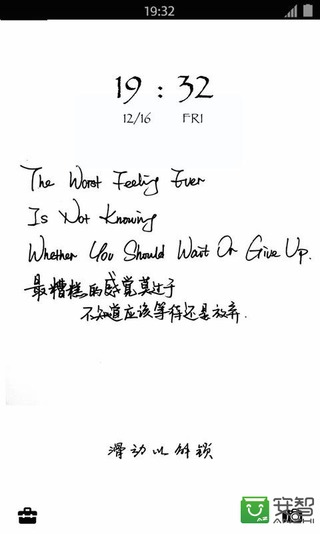 19:32
19 : 32
12/16 FRI
The Worst Feeling Ever
Is Not Knowing
Whether You Should Wait Or Give Up.
最糟糕的感觉莫过于
不知道应该等待还是放弃.
滑动以解锁
安智
ANZHI